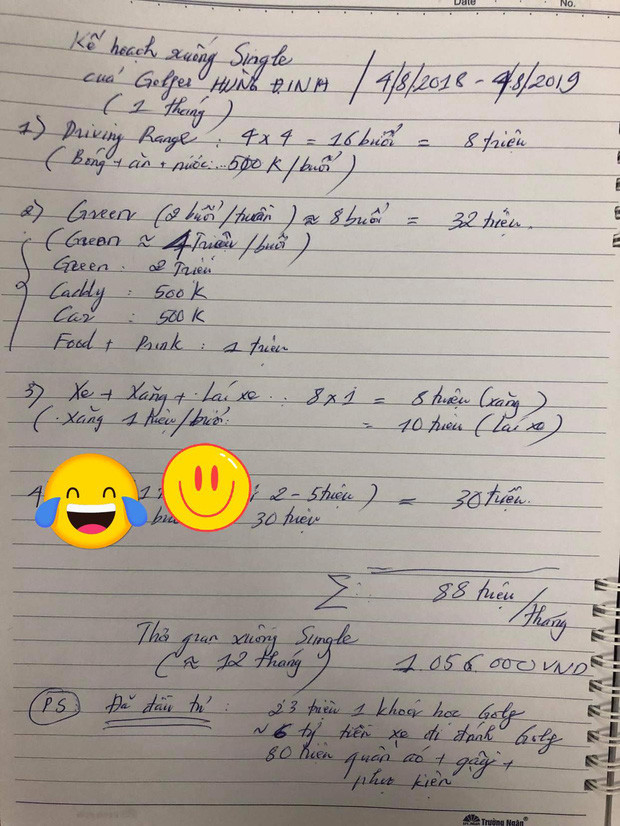 Date
No.
Kế hoạch xuống Single
của Golfer HÙNG ĐINH / 4/8/2018 - 4/8/2019
( 1 tháng )
1) Driving Range : 4 x 4 = 16 buổi = 8 triệu
( Bóng + ăn + nước... 500 K / buổi )
2) Green ( 2 buổi / tuần ) ≈ 8 buổi = 32 triệu.
( Green ≈ 4 Triệu / buổi )
Green : 2 Triệu
Caddy : 500 K
Car : 500 K
Food + Drink : 1 triệu
3) Xe + Xăng + Lái xe .. 8 x 1 = 8 triệu (xăng)
( Xăng 1 triệu / buổi = 10 triệu ( Lái xe )
4 2 - 5 triệu ) = 30 triệu.
30 triệu
Σ : 88 triệu / tháng
Thời gian xuống Single
( ≈ 12 tháng ) 1.056.000 VND
P.S Đã đầu tư : 23 triệu 1 khoá học Golf
≈ 6 tỷ tiền xe đi đánh Golf
80 triệu quần áo + gậy +
phụ kiện
Trường Ngân